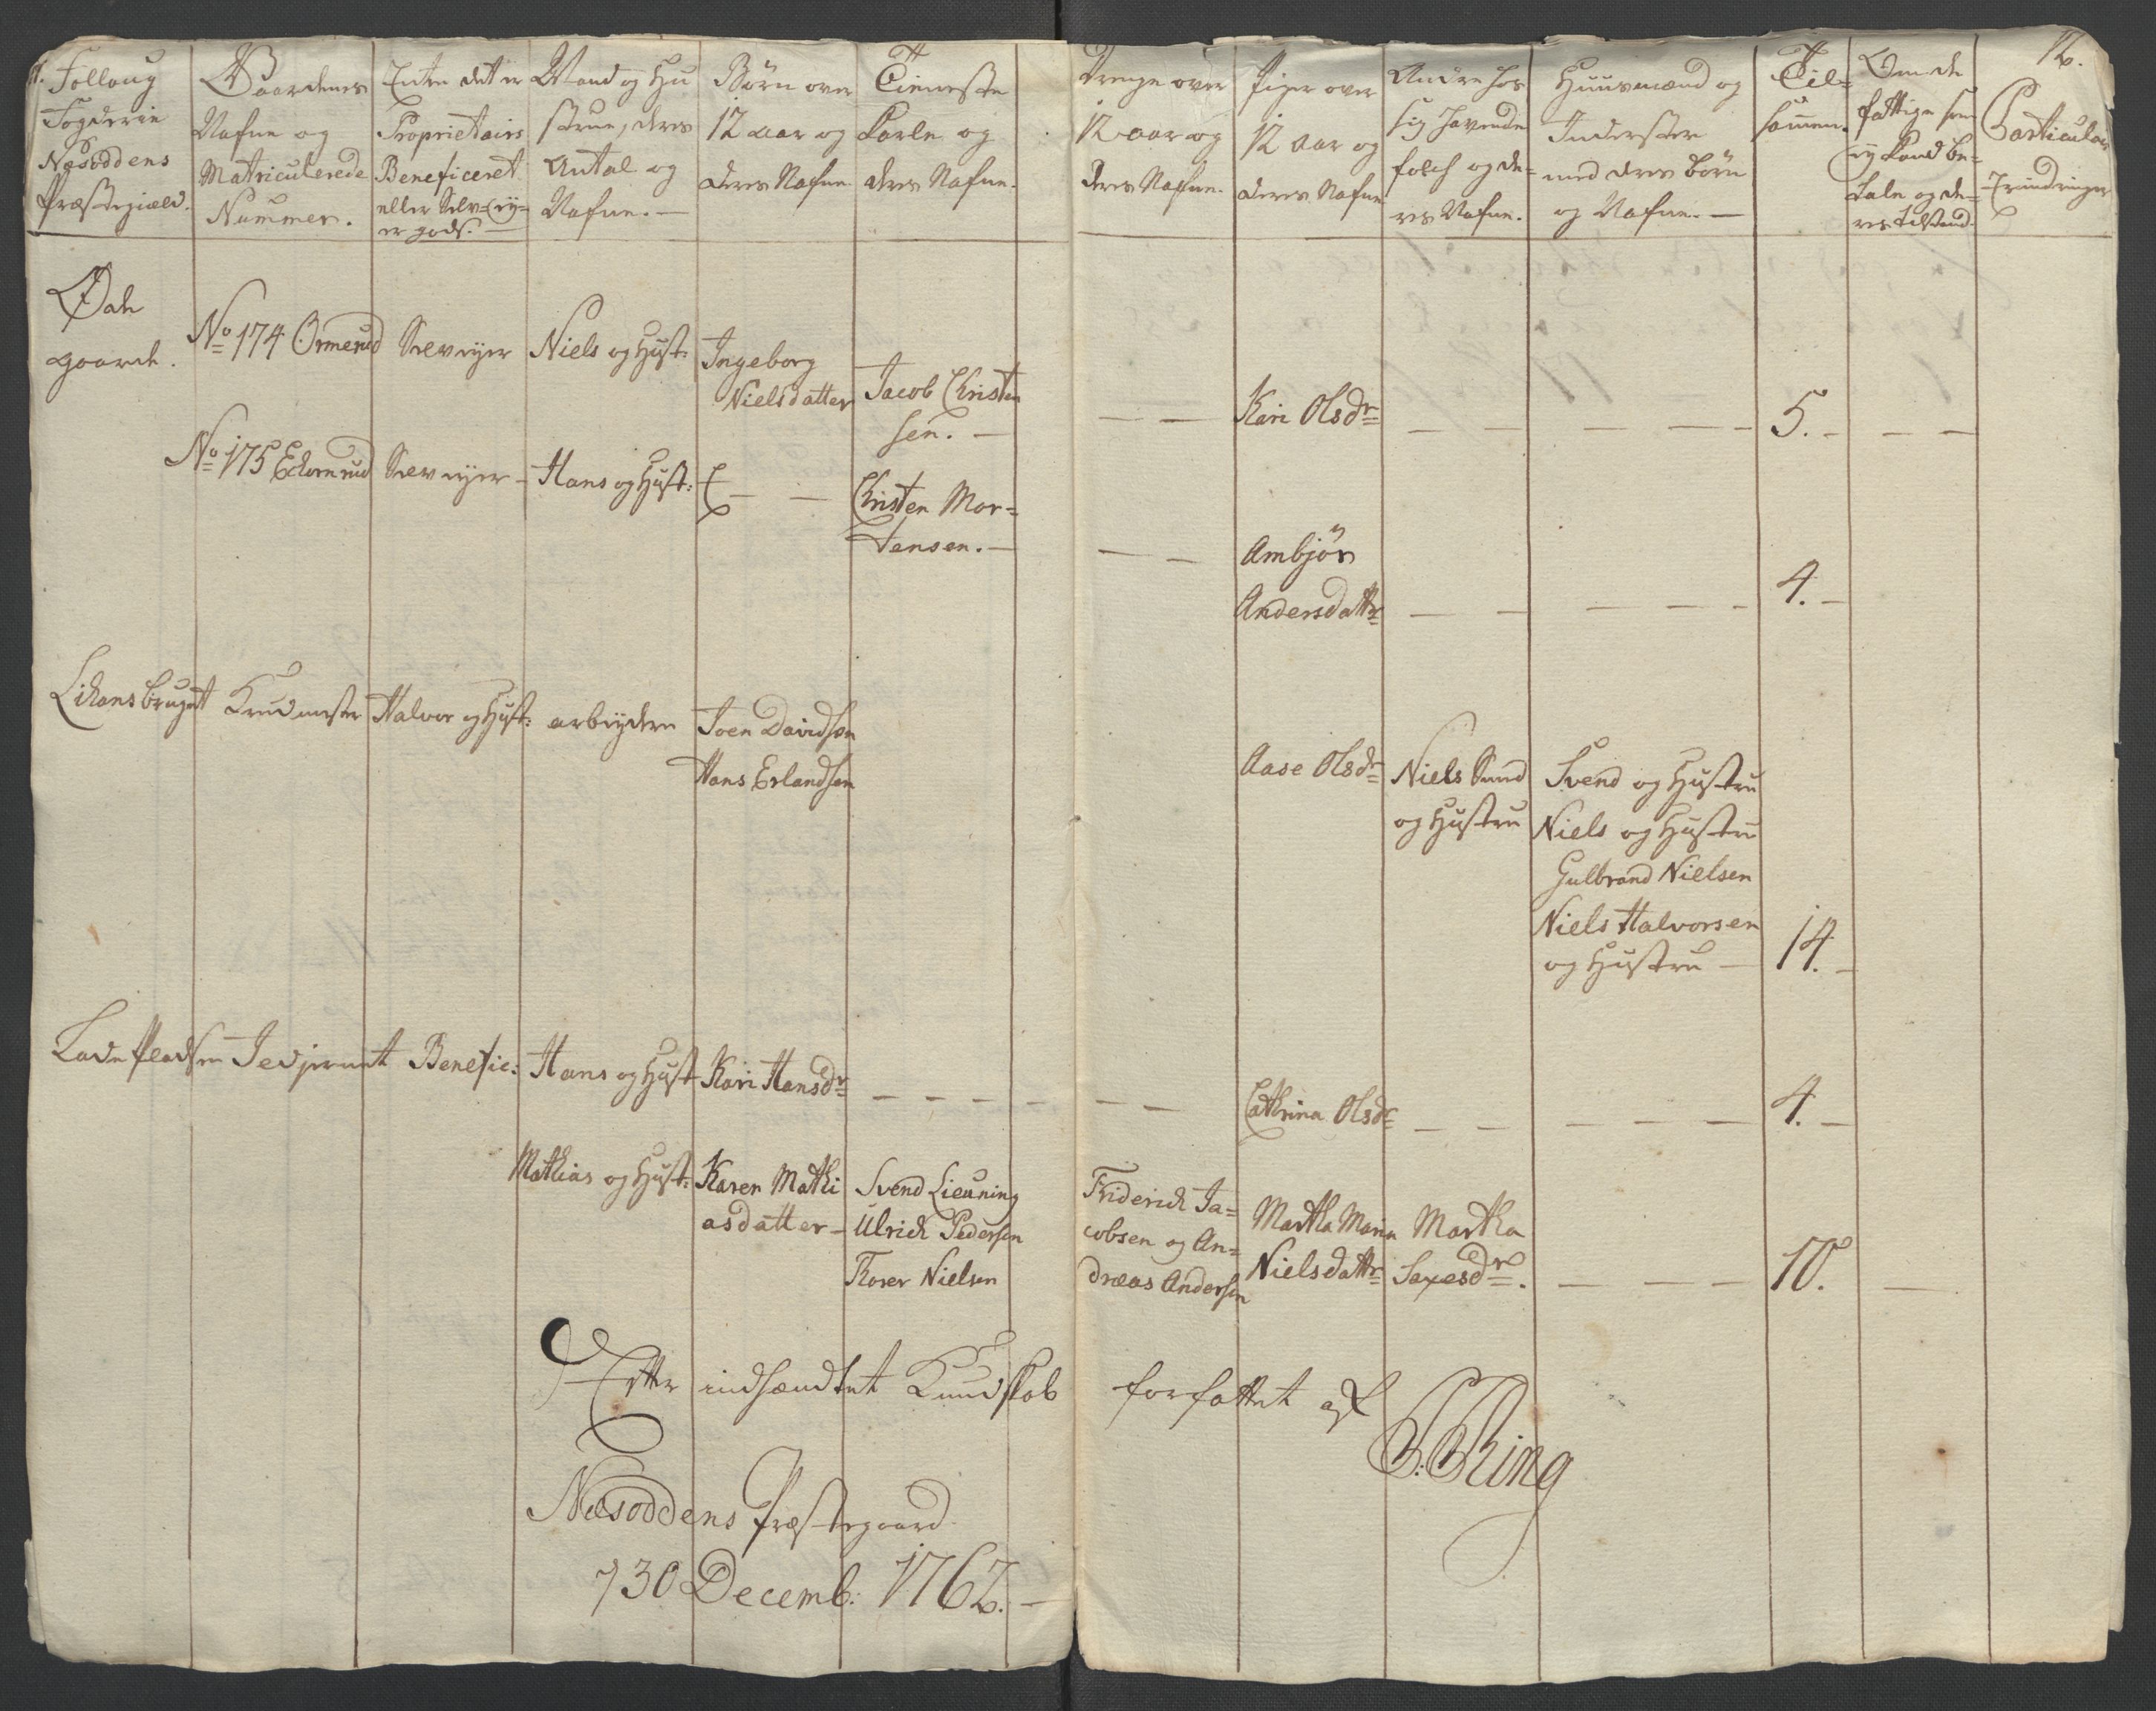 Folloug
Fogderie
Næsoddens
Præstegield.
Gaardenes
Nafne og
Matriculerede
Nummer.
Enten det er
Proprietairs
Beneficeret
eller Selv Eÿ-
er gods.
Mand og Hu
strue, deres
Antal og
Nafne. —
Børn over
12 aar og
deres Nafne.
Tieneste
Karle og
deres Nafne.
Drenge over
12 aar og
deres Nafne.
Piger over
12 aar og
deres Nafne
Andre hos
sig havende
folch og de=
res Nafne.
Huusmænd og
Inderster
med deres børn
og Nafne. —
Til=
samen.
Om de
fattige som
eÿ kand be=
tale og de=
res tilstand.
12.
Particular
Erindringer
Øde
gaarde.
No 174 Ormerud Selveÿer Niels og Hust: Ingeborg
Nielsdatter Jacob Christen
sen. — — — Kari Olsdr — — — — — 5. — — —
No 175 Echornrud Selveÿer — Hans og Hust: — — Christen Mor=
tensen. — — — Ambjør
Andersdattr — — — — — 4. —
Halvor og Hust: arbeÿdere Joen Davidsen
Hans Erlandsen
Aase Olsdr Niels Sund
og Hustru
Svend og Hustru
Niels og Hustru
Gulbrand Nielsen
Niels Halvorsen
og Hustru — 14. —
Benefic: Hans og Hust Kari Hansdr — — — — — — Cathrina Olsdr — — — — — 4. —
Mathias og Hust: Karen Mathi
asdatter —
Svend Lieuning
Ulrich Pedersen
Thorer Nielsen
Friderich Ja=
cobsen og An=
dreas Andersen
Martha Maria
Nielsdattr
Martha
Saxesdr. — — — 10. —
Efter indsændtet Kundskab forfattet af
J: Ring
Næsoddens Præstegaard
d 30 Decemb: 1762. —